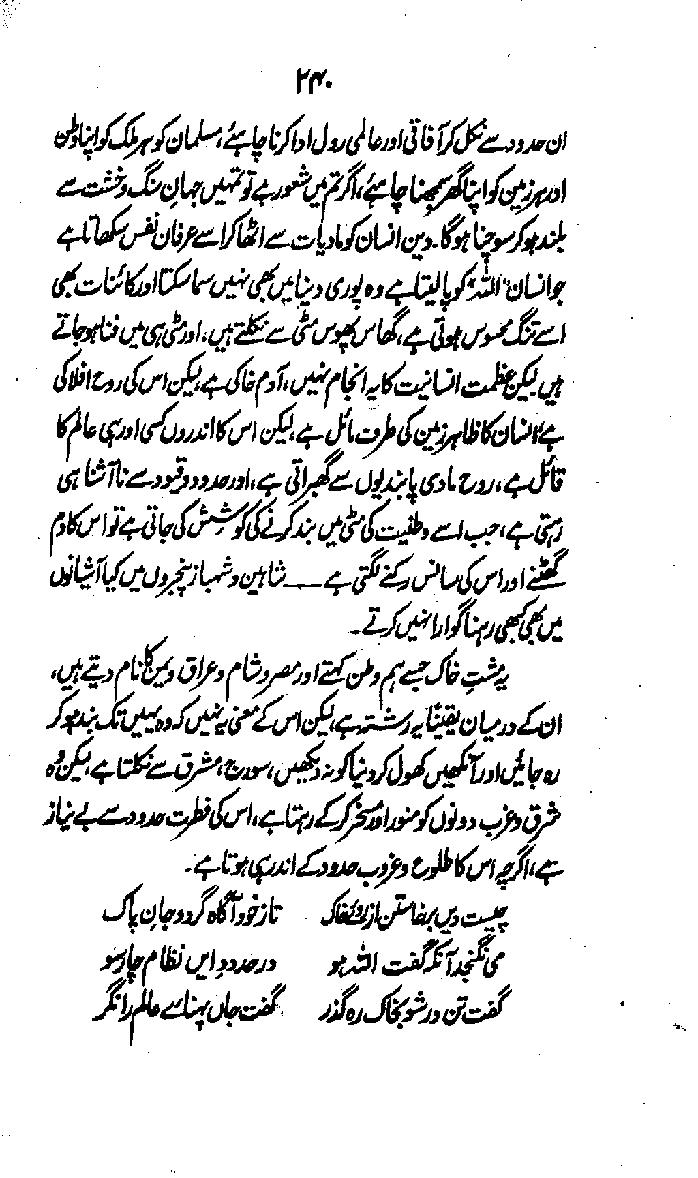 ۲۴۰
ان حدود سے نکل کر آفاقی اور عالمی رول ادا کرنا چاہئے، مسلمان کو ہر ملک کو اپنا وطن
اور ہر زمین کو اپنا گھر سمجھنا چاہئے، اگر تم میں شعور ہے تو تمہیں جہانِ سنگ وخشت سے
بلند ہو کر سوچنا ہوگا۔ دین انسان کو مادیات سے اٹھا کر اسے عرفان نفس سکھاتا ہے
جو انسان "اللہ" کو پالیتا ہے وہ پوری دنیا میں بھی نہیں سما سکتا اور کائنات بھی
اسے تنگ محسوس ہوتی ہے، گھاس پھوس مٹی سے نکلتے ہیں، اور مٹی ہی میں فنا ہو جاتے
ہیں لیکن عظمت انسانیت کا یہ انجام نہیں، آدم خاکی ہے، لیکن اس کی روح افلاکی
ہے، انسان کا ظاہر زمین کی طرف مائل ہے، لیکن اس کا اندروں کسی اور ہی عالم کا
قائل ہے، روح مادی پابندیوں سے گھبراتی ہے، اور حدود و قیود سے ناآشنا ہی
رہتی ہے، جب اسے وطنیت کی مٹی میں بند کرنے کی کوشش کی جاتی ہے تو اس کا دم
گھٹنے اور اس کی سانس رکنے لگتی ہے ــــ شاہین و شہباز پنجروں میں کیا آشیانوں
میں بھی کبھی رہنا گوارا نہیں کرتے۔
یہ مشتِ خاک جسے ہم وطن کہتے اور مصر و شام و عراق و یمن کا نام دیتے ہیں،
ان کے درمیان یقیناً یہ رشتہ ہے، لیکن اس کے معنی یہ نہیں کہ وہ یہیں تک بند ہو کر
رہ جائیں اور آنکھیں کھول کر دنیا کو نہ دیکھیں، سورج، مشرق سے نکلتا ہے، لیکن وہ
شرق و غرب دونوں کو منور اور مسخر کرکے رہتا ہے، اس کی فطرت حدود سے بے نیاز
ہے، اگرچہ اس کا طلوع و غروب حدود کے اندر ہی ہوتا ہے۔
چیست دیں برخاستن از روئے خاک تا ز خود آگاہ گردد جانِ پاک
می نگنجد آنکہ گفت اللہ ہو در حدودِ ایں نظام چار سو
گفت تن در شو بخاک رہ گذر گفت جاں پہنائے عالم را نگر